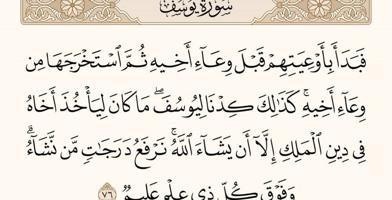 سُورَةُ يُوسُفَ
فَبَدَأَ بِأَوْعِيَتِهِمْ قَبْلَ وِعَآءِ أَخِيهِ ثُمَّ ٱسْتَخْرَجَهَا مِن
وِعَآءِ أَخِيهِۚ كَذَٰلِكَ كِدْنَا لِيُوسُفَۖ مَا كَانَ لِيَأْخُذَ أَخَاهُ
فِى دِينِ ٱلْمَلِكِ إِلَّآ أَن يَشَآءَ ٱللَّهُۚ نَرْفَعُ دَرَجَٰتٍ مَّن نَّشَآءُۗ
وَفَوْقَ كُلِّ ذِى عِلْمٍ عَلِيمٌ ٧٦